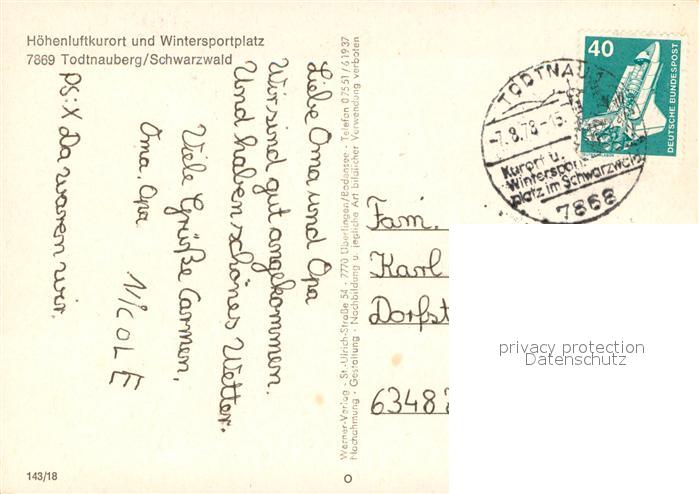 Höhenluftkurort und Wintersportplatz
7869 Todtnauberg/Schwarzwald
Liebe Oma und Opa
Wir sind gut angekommen.
Und haben schönes Wetter.
Viele Grüße Carmen,
Oma, Opa NicolE
PS: X Da waren wir.
143/18
Werner-Verlag - St.-Ulrich-Straße 54 - 7770 Überlingen/Bodensee - Telefon 07551/61937
Nachahmung - Gestaltung - Nachbildung u. jegliche Art bildlicher Verwendung verboten
40
DEUTSCHE BUNDESPOST
TODTNAU
-7.8.78-15
Kurort u.
Wintersport-
platz im Schwarzwald
7868
Fam.
Karl
Dorfst
6348
privacy protection
Datenschutz